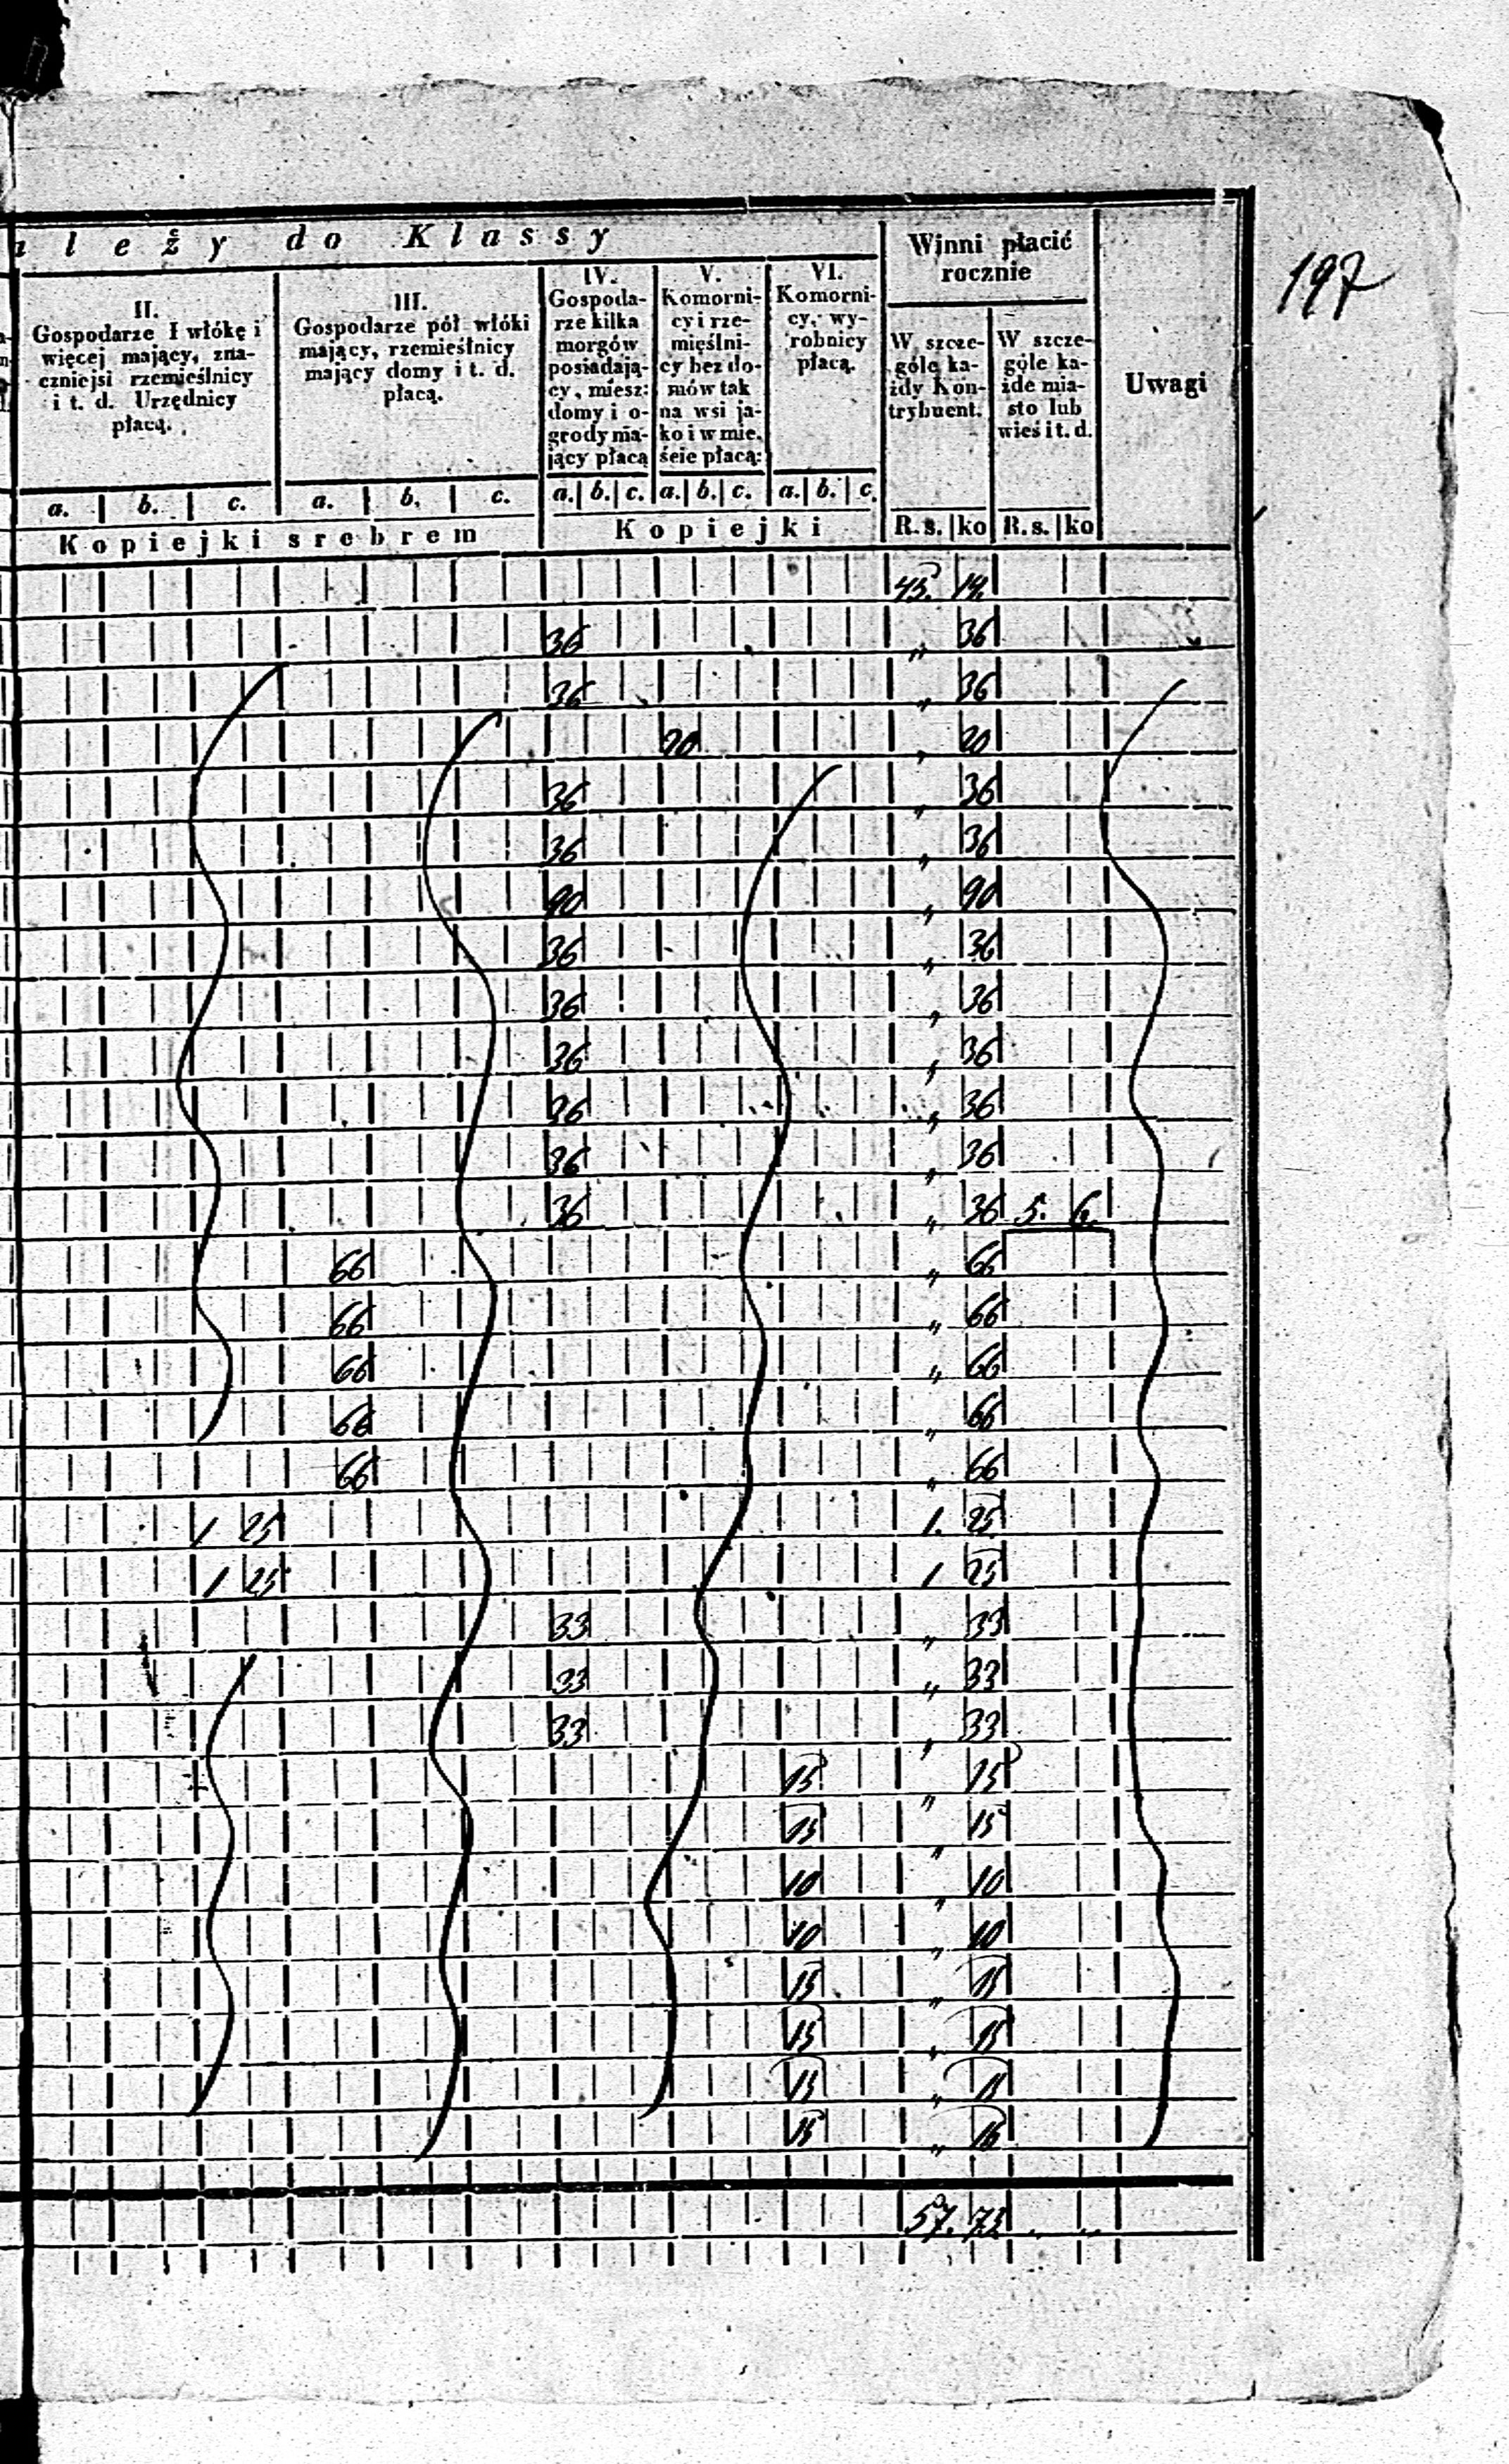 ależy do Klassy
Winni płacić rocznie
197
II.
Gospodarze I włókę i
więcej mający, zna-
czniejsi rzemieślnicy
i t. d. Urzędnicy
płacą.
III.
Gospodarze pół włóki
mający, rzemieślnicy
mający domy i t. d.
płacą.
IV.
Gospoda-
rze kilka
morgów
posiadają-
cy, miesz:
domy i o-
grody ma-
jący płacą
V.
Komorni-
cy i rze-
mięślni-
cy bez do-
mów tak
na wsi ja-
ko i w mie-
ście płacą:
VI.
Komorni-
cy, wy-
robnicy
płacą.
W szcze-
góle ka-
żdy Kon-
trybuent.
W szcze-
góle ka-
żde mia-
sto lub
wieś i t. d.
Uwagi
a. b. c. a. b. c. a. b. c. a. b. c. a. b. c.
Kopiejki srebrem Kopiejki R.s. ko R.s. ko
45. 19.
36 " 36
36 " 36
20 " 20
36 " 36
36 " 36
90 " 90
36 " 36
36 " 36
36 " 36
36 " 36
36 " 36
36 " 36 5. 6.
66 " 66
66 " 66
66 " 66
66 " 66
66 " 66
1 25 1. 25
1 25 1 25
33 " 33
33 " 33
33 " 33
15 " 15
15 " 15
10 " 10
10 " 10
15 " 15
15 " 15
15 " 15
15 " 15
57. 73